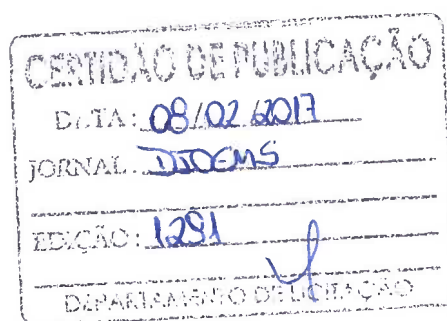 CERTIDÃO DE PUBLICAÇÃO
DATA: 08/02/2017
JORNAL: DIOEMS
EDIÇÃO: 1291
DEPARTAMENTO DE LICITAÇÃO